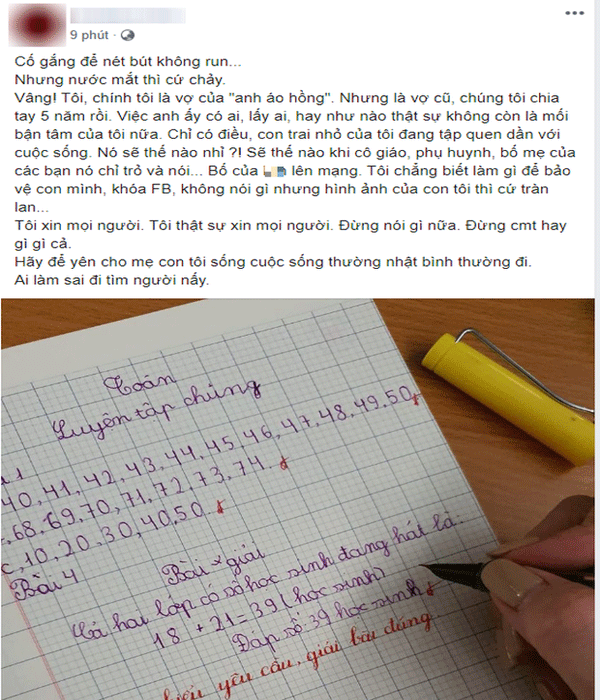 9 phút ·
Cố gắng để nét bút không run...
Nhưng nước mắt thì cứ chảy.
Vâng! Tôi, chính tôi là vợ của "anh áo hồng". Nhưng là vợ cũ, chúng tôi chia
tay 5 năm rồi. Việc anh ấy có ai, lấy ai, hay như nào thật sự không còn là mối
bận tâm của tôi nữa. Chỉ có điều, con trai nhỏ của tôi đang tập quen dần với
cuộc sống. Nó sẽ thế nào nhỉ ?! Sẽ thế nào khi cô giáo, phụ huynh, bố mẹ của
các bạn nó chỉ trỏ và nói... Bố của lên mạng. Tôi chẳng biết làm gì để bảo
vệ con mình, khóa FB, không nói gì nhưng hình ảnh của con tôi thì cứ tràn
lan...
Tôi xin mọi người. Tôi thật sự xin mọi người. Đừng nói gì nữa. Đừng cmt hay
gì gì cả.
Hãy để yên cho mẹ con tôi sống cuộc sống thường nhật bình thường đi.
Ai làm sai đi tìm người nấy.
Toán
Luyện tập chung
40, 41, 42, 43, 44, 45, 46, 47, 48, 49, 50
, 68, 69, 70, 71, 72, 73, 74.
c, 10, 20, 30, 40, 50.
Bài 4
Bài giải
Cả hai lớp có số học sinh đang hát là:
18 + 21 = 39 (học sinh)
Đáp số: 39 học sinh
yêu cầu, giải bài đúng